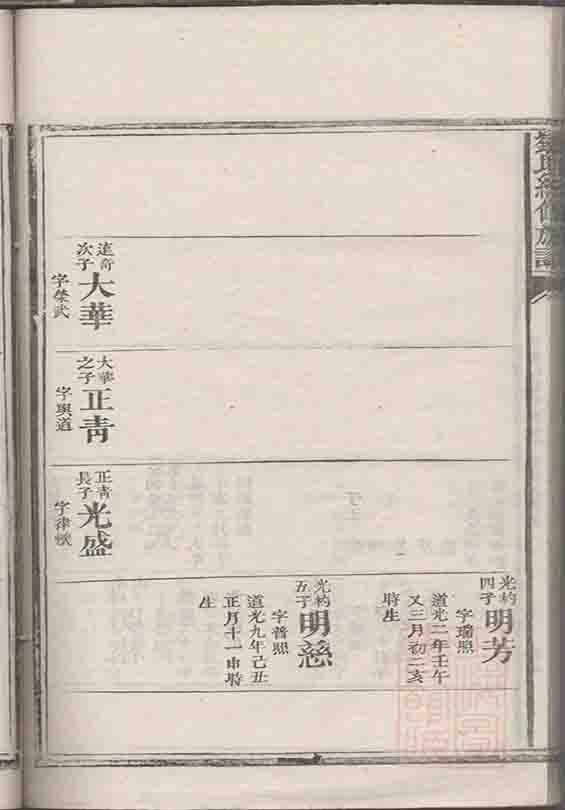 氏續修族譜
光礿
四子
明芳
字瑞照
道光二年壬午
又三月初二亥
時生
光礿
五子
明慈
字普照
道光九年己丑
正月十一申時
生
遠奇
次子
大華
字榮武
大華
之子
正靑
字與道
正靑
長子
光盛
字律